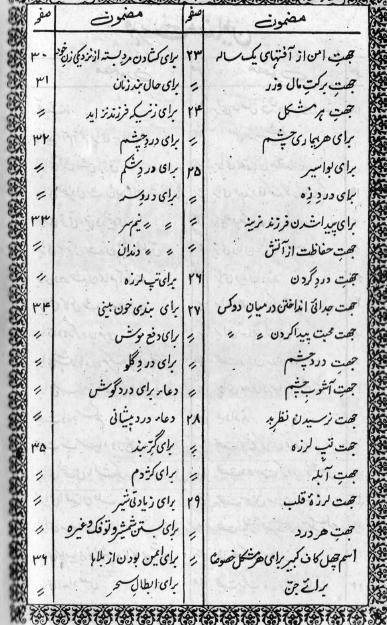 مضمون صفحہ مضمون صفحہ
جہت امن از آفتہای یک سالہ ۲۳ برای کشادن مرد بستہ از نزدیکی زن خود ۳۰
جہت برکت مال و زر 〃 برای حال بند زنان ۳۱
جہت ہر مشکل ۲۴ برای زنیکہ فرزند نزاید 〃
برای ہر بیماری چشم 〃 برای درد چشم ۳۲
برای بواسیر ۲۵ برای درد شکم 〃
برای درد زہ 〃 برای درد سر 〃
برای پیدا شدن فرزند نرینہ 〃 〃 〃 نیم سر ۳۳
جہت حفاظت از آتش 〃 〃 〃 دندان 〃
جہت درد گردن ۲۶ برای تپ لرزہ 〃
جہت جدائی انداختن درمیان دو کس ۲۷ برای بندی خون بینی ۳۴
جہت محبت پیدا کردن 〃 〃 〃 برای دفع موش 〃
جہت درد چشم 〃 برای درد گلو 〃
جہت آشوب چشم 〃 دعاء برای درد گوش 〃
جہت نرسیدن نظر بد ۲۸ دعاء درد پیشانی 〃
جہت تپ لرزہ 〃 برای گزند ۳۵
جہت آبلہ 〃 برای کژدم 〃
جہت لرزۂ قلب ۲۹ برای زیادتی شیر 〃
جہت ہر درد 〃 برای بستن شمشیر و تفنگ وغیرہ 〃
اسم چہل کاف کبیر برای ہر مشکل خصوصًا 〃 برای ایمن بودن از بلاہا ۳۶
برائے جن برای ابطال سحر 〃